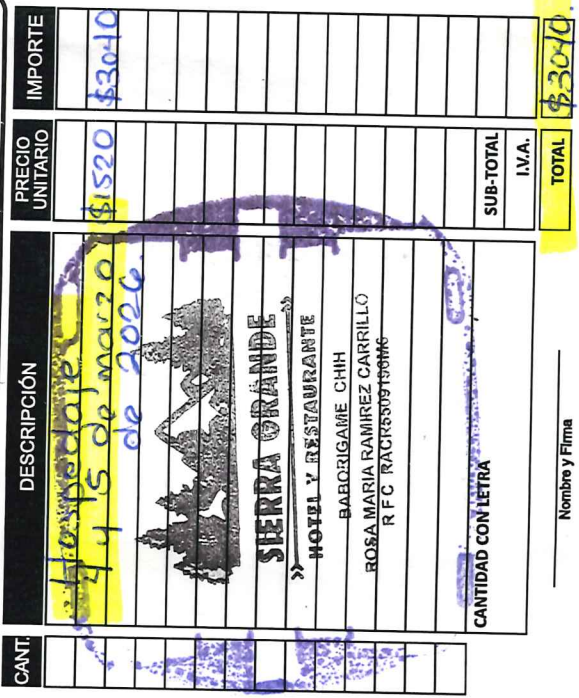 CANT. DESCRIPCIÓN PRECIO UNITARIO IMPORTE
Hospedaje
4 y 5 de marzo $1520 $3040
de 2026.
SIERRA GRANDE
HOTEL Y RESTAURANTE
BABORIGAME CHIH
ROSA MARIA RAMIREZ CARRILLO
R F C
CANTIDAD CON LETRA
SUB-TOTAL
I.V.A.
TOTAL $3040.
Nombre y Firma